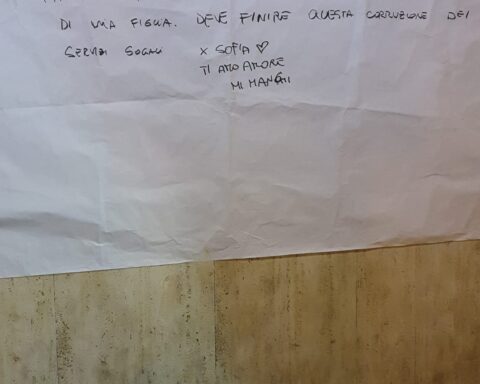 DI UNA FIGLIA. DEVE FINIRE QUESTA CORRUZIONE DEI
SERVIZI SOCIALI X SOFIA ♡
TI AMO AMORE
MI MANCHI